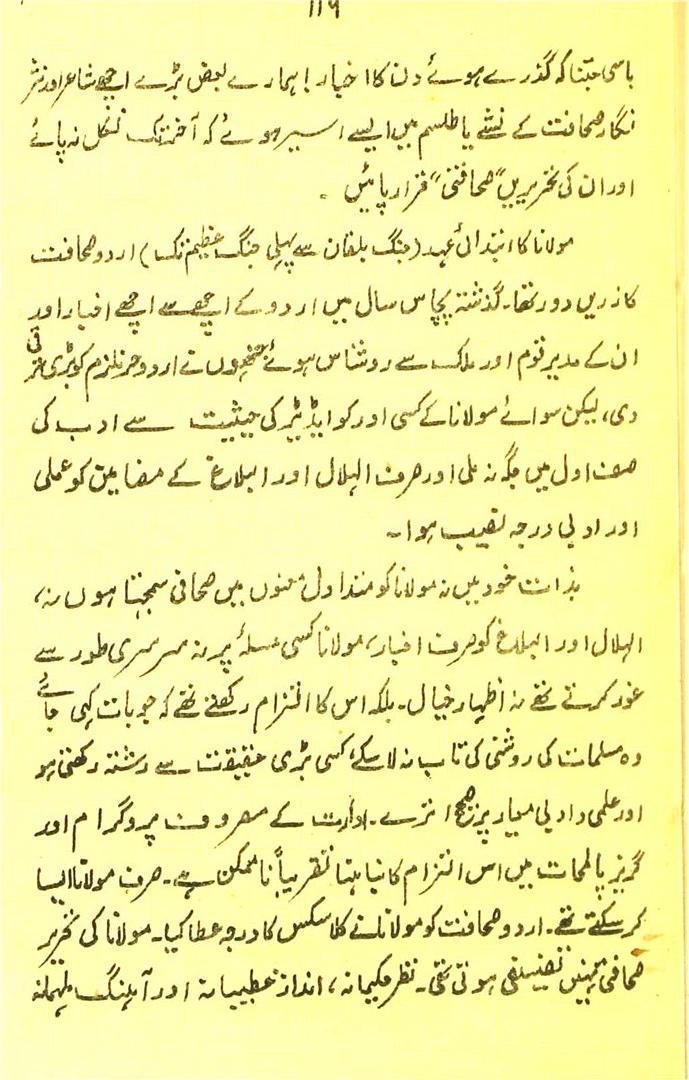 ۱۱۹
باسی جتنا کہ گذرے ہوئے دن کا اخبار! ہمارے بعض بڑے اچھے شاعر اور نثر
نگار صحافت کے نشے یا طلسم میں ایسے اسیر ہوئے کہ آخر تک نکل نہ پائے
اور ان کی تحریریں "صحافتی" قرار پائیں ۔
مولانا کا ابتدائی عہد (جنگ بلقان سے پہلی جنگ عظیم تک) اردو صحافت
کا زریں دور تھا۔ گذشتہ پچاس سال میں اردو کے اچھے سے اچھے اخبار اور
ان کے مدیر قوم اور ملک سے روشناس ہوئے جنھوں نے اردو جرنلزم کو بڑی ترقی
دی، لیکن سوائے مولانا کے کسی اور کو ایڈیٹر کی حیثیت سے ادب کی
صف اول میں جگہ نہ ملی اور صرف الہلال اور البلاغ کے مضامین کو عملی
اور ادبی درجہ نصیب ہوا۔
بذات خود میں نہ مولانا کو متداول معنوں میں صحافی سمجھتا ہوں نہ،
الہلال اور البلاغ کو صرف اخبار، مولانا کسی مسلۂ پر نہ سرسری طور سے
غور کرتے تھے نہ اظہار خیال۔ بلکہ اس کا التزام رکھتے تھے کہ جو بات کہی جائے
وہ مسلمات کی روشنی کی تاب نہ لا سکے، کسی بڑی حقیقت سے رشتہ رکھتی ہو
اور علمی و ادبی معیار پر صحیح اترے۔ ادارت کے مصروف پروگرام اور
گریز پا لمحات میں اس التزام کا نباہنا تقریباً ناممکن ہے۔ صرف مولانا ایسا
کر سکتے تھے۔ اردو صحافت کو مولانا نے کلاسکس کا درجہ عطا کیا۔ مولانا کی تحریر
صحافی نہیں تصنیفی ہوتی تھی۔ نظر حکیمانہ، انداز خطیبانہ اور آہنگ ملہمانہ